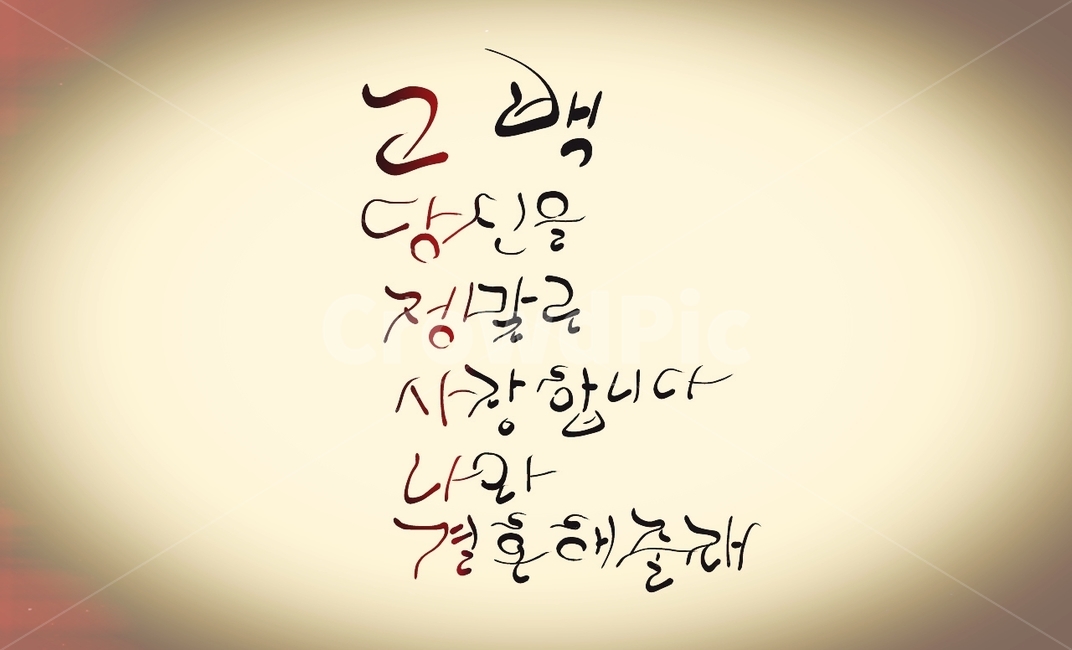 고백
당신을
정말로
사랑합니다
나와
결혼해줄래
CrowdPic